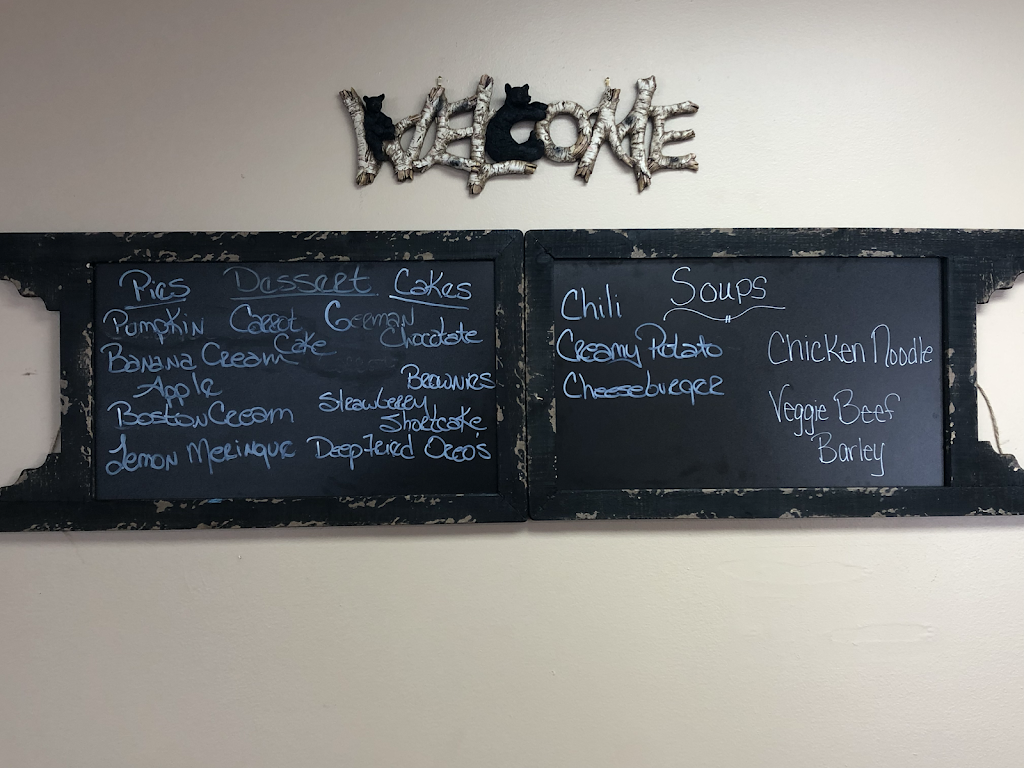 WELCOME
Pies Dessert Cakes
Pumpkin Carrot German
Cake Chocolate
Banana Cream
Apple Brownies
Boston Cream Strawberry
Shortcake
Lemon Merinque Deep Fried Oreo's
Soups
Chili
Creamy Potato Chicken Noodle
Cheeseburger
Veggie Beef
Barley